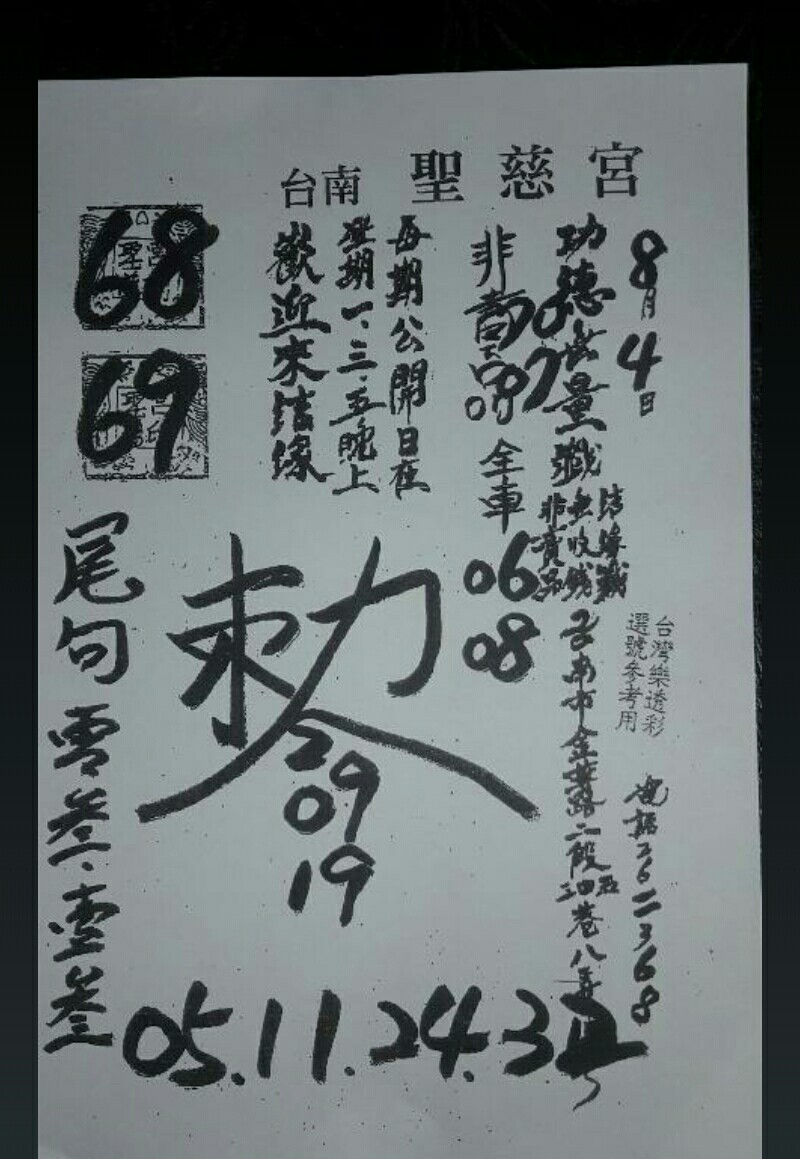 台南 聖慈宮
8月4日
功德無量
非賣品
每期公開日在
星期一、三、五晚上
歡迎來結緣
68
69
全車
06
08
結緣
無收錢
非賣品
台灣樂透彩
選號參考用
台南市金華路二段
巷八弄
電話2622368
敕
2
09
19
尾句
零叁·壹叁
05.11.24.32